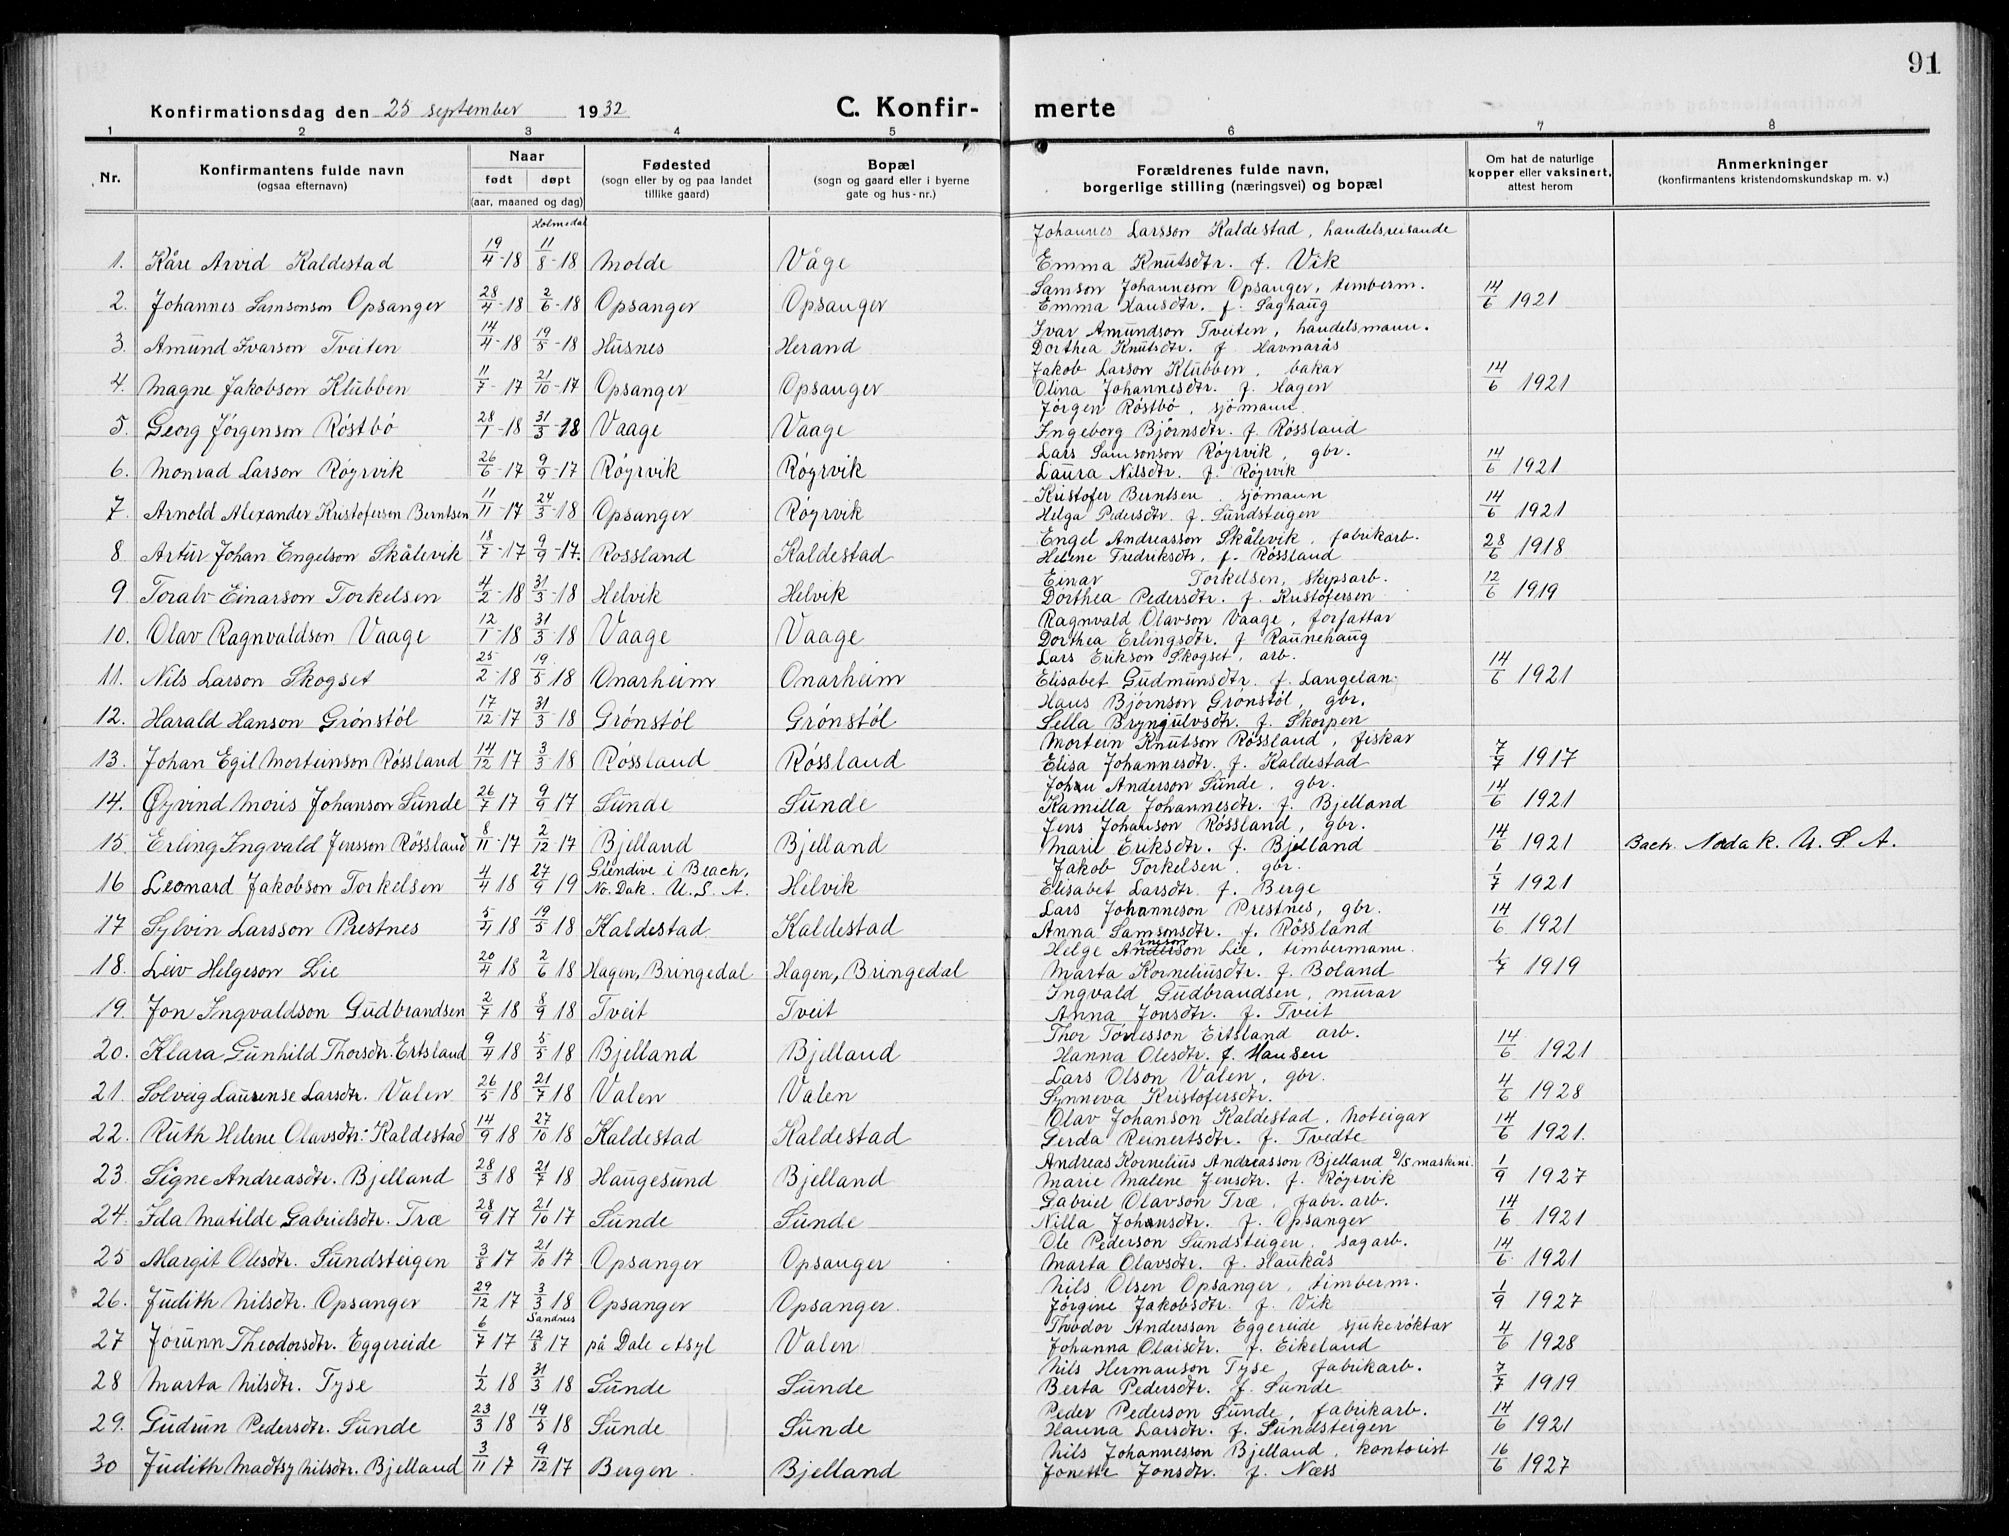 91
Konfirmationsdag den 25 september 1932
C. Konfir- merte
1 2 3 4 5 6 7 8
Nr.
Konfirmantens fulde navn
(ogsaa efternavn)
Naar
født døpt
(aar, maaned og dag)
Fødested
(sogn eller by og paa landet
tillike gaard)
Bopæl
(sogn og gaard eller i byerne
gate og hus-nr.)
Forældrenes fulde navn,
borgerlige stilling (næringsvei) og bopæl
Om hat de naturlige
kopper eller vaksinert,
attest herom
Anmerkninger
(konfirmantens kristendomskundskap m. v.)
Holmedal
Johannes Larsson Kaldestad, handelsreisande
1. Kåre Arvid Kaldestad 19/4-18 11/8-18 Molde Våge Emma Knutsdtr. f. Vik
Samson Johanneson Opsanger, timberm.
2. Johannes Samsonson Opsanger 28/4-18 2/6-18 Opsanger Opsanger Emma Hansdtr. f. Saghaug 14/6 1921
Ivar Amundson Tveiten, handelsmann.
3. Amund Ivarson Tveiten 14/4-18 19/5-18 Husnes Herand Dorthea Knutsdtr. f. Havnarås
Jakob Larson Klubben, bakar
4. Magne Jakobson Klubben 11/7-17 21/10-17 Opsanger Opsanger Olina Johannesdtr. f. Hagen 14/6 1921
Jörgen Röstbö, sjömann
5. Georg Jörgenson Röstbö 28/1-18 31/3-18 Vaage Vaage Ingeborg Bjørnsdtr. f. Røssland
Lars Samsonson Röyrvik, gbr.
6. Monrad Larson Röyrvik 26/6-17 9/9-17 Röyrvik Röyrvik Laura Nilsdtr. f. Røyrvik 14/6 1921
Kristofer Berntsen, sjömann
7. Arnold Alexander Kristofersen Berntsen 11/11-17 24/3-18 Opsanger Röyrvik Helga Pedersdtr. f. Sundsteigen 14/6 1921
Engel Andreasson Skålevik, fabrikarb.
8 Artur Johan Engelson Skålevik 18/7-17 9/9-17. Rossland Kaldestad Helene Fredriksdtr. f. Røssland 28/6 1918
Einar Torkelsen, skipsarb.
9 Toralv Einarson Torkelsen 4/2-18 31/3-18 Helvik Helvik Dorthea Pedersdtr. f. Kristofersen 12/6 1919
Ragnvald Olavson Vaage, forfattar
10. Olav Ragnvaldson Vaage 12/1-18 31/3 18 Vaage Vaage Dorthea Erlingsdtr. f Raunehaug
Lars Erikson Skogset, arb.
11. Nils Larson Skogset 25/2-18 19/5 18 Onarheim Onarheim Elisabet Gudmunsdtr. f. Langelan- 14/6 1921
Hans Bjørnson Grønstøl, gbr.
12. Harald Hanson Grönstöl 17/12-17 31/3 18 Grönstöl Grönstöl Sella Bryngulvsdtr. f. Skorpen
Mortein Knutson Røssland, fiskar
13. Johan Egil Morteinson Røssland 14/12 17 3/3 18 Røssland Røssland Elisa Johannesdtr. f. Kaldestad 7/7 1917
Johan Anderson Sunde, gbr.
14. Øyvind Moris Johanson Sunde 26/7 17 9/9 17 Sunde Sunde Kamilla Johannesdtr. f. Bjelland 14/6 1921
Jens Johanson Røssland, gbr.
15 Erling Ingvald Jensson Røssland 8/11-17 2/12-17 Bjelland Bjelland Marie Eriksdtr. f. Bjelland 14/6 1921 Bach. Noda k. U. S. A.
Glendive i Beach, Jakob Torkelsen, gbr.
16 Leonard Jakobson Torkelsen 4/4 18 27/9 19 No. Dak. U. S. A. Helvik Elisabet Larsdtr. f. Berge 1/7 1921
Lars Johanneson Prestnes, gbr.
17 Sylvin Larsson Prestnes 5/4 18 19/5 18 Kaldestad Kaldestad Anna Samsonsdtr. f. Røssland 14/6 1921
Helge Anderson Lie, timbermann.
18. Leiv Helgeson Lie 20/4 18 2/6 18 Hagen, Bringedal Hagen, Bringedal Marta Korneliusdtr. f. Boland 1/7 1919
Ingvald Gudbrandsen, murar
19. Jon Ingvaldson Gudbrandsen 2/7 18 8/9 18 Tveit Tveit Anna Jonsdtr. f. Tveit
Thor Tönesson Ertsland arb.
20. Klara Gunhild Thorsdtr. Ertsland 9/4 18 5/5 18 Bjelland Bjelland Hanna Olesdtr. f. Hansen 14/6 1921
Lars Olson Valen, gbr.
21. Solveig Laurense Larsdtr. Valen 26/5 18 21/7 18 Valen Valen Synneva Kristofersdtr. 4/6 1928
Olav Johanson Kaldestad, noteigar
22. Ruth Helene Olavsdtr. Kaldestad 14/9 18 27/10 18 Kaldestad Kaldestad Gerda Reinertsdtr. f. Tvedte 14/6 1921.
Andreas Kornelius Andreasson Bjelland D/S maskini.
23. Signe Andreasdtr. Bjelland 28/3 18 21/7 18 Haugesund Bjelland Marie Malene Jensdtr. f. Røyrvik 1/9 1927
Gabriel Olavson Træ, fabr. arb.
24. Ida Matilde Gabrielsdtr. Træ 28/9 17 21/10 17 Sunde Sunde Nilla Johansdtr. f. Opsanger 14/6 1921
Ole Pederson Sundsteigen, sagarb.
25 Margit Olesdtr. Sundsteigen 3/8 17 21/10 17 Opsanger Opsanger Marta Olavsdtr. f. Haukås 14/6 1921
Nils Olsen Opsanger, timberm.
26. Judith Nilsdtr. Opsanger 29/12 17 3/3 18 Opsanger Opsanger. Jørgine Jakobsdtr. f. Vik 1/9 1927
Sandnes Thodor Andersson Eggereide sjukerøktar
27 Jorunn Theodorsdtr. Eggereide 6/7 17 12/8 17 på Dale Asyl Valen Johanna Olaisdtr. f. Eikeland 4/6 1928
Nils Hermanson Tyse, fabrikarb.
28 Marta Nilsdtr. Tyse 1/2 18 31/3 18 Sunde Sunde Berta Pedersdtr. f. Sunde 7/7 1919
Peder Pederson Sunde, fabrikarb.
29. Gudrun Pedersdtr. Sunde 23/3 18 19/5 18 Sunde Sunde Hanna Larsdtr. f. Sundsteigen 14/6 1921
Nils Johannesson Bjelland, kontorist
30 Judith Madtsy Nilsdtr. Bjelland 3/11 17 9/12 17 Bergen Bjelland Jonette Jonsdtr. f. Næss 16/6 1927